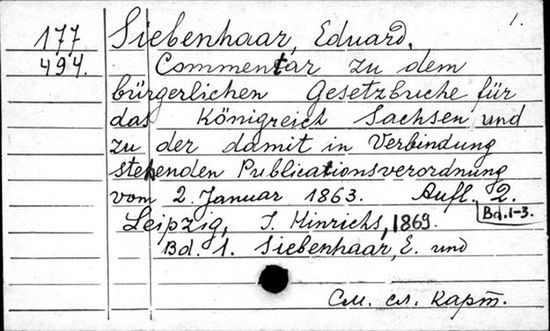 1.
177 Siebenhaar, Eduard.
494. Commentar zu dem
bürgerlichen Gesetzbuche für
das Königreich Sachsen und
zu der damit in Verbindung
stehenden Publicationsverordnung
vom 2. Januar 1863. Aufl. 2.
Bd. 1-3.
Leipzig, J. Hinrichs, 1869.
Bd. 1. Siebenhaar, E. und
См. сл. карт.